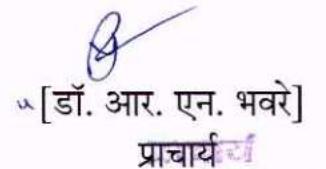 [डॉ. आर. एन. भवरे]
प्राचार्य